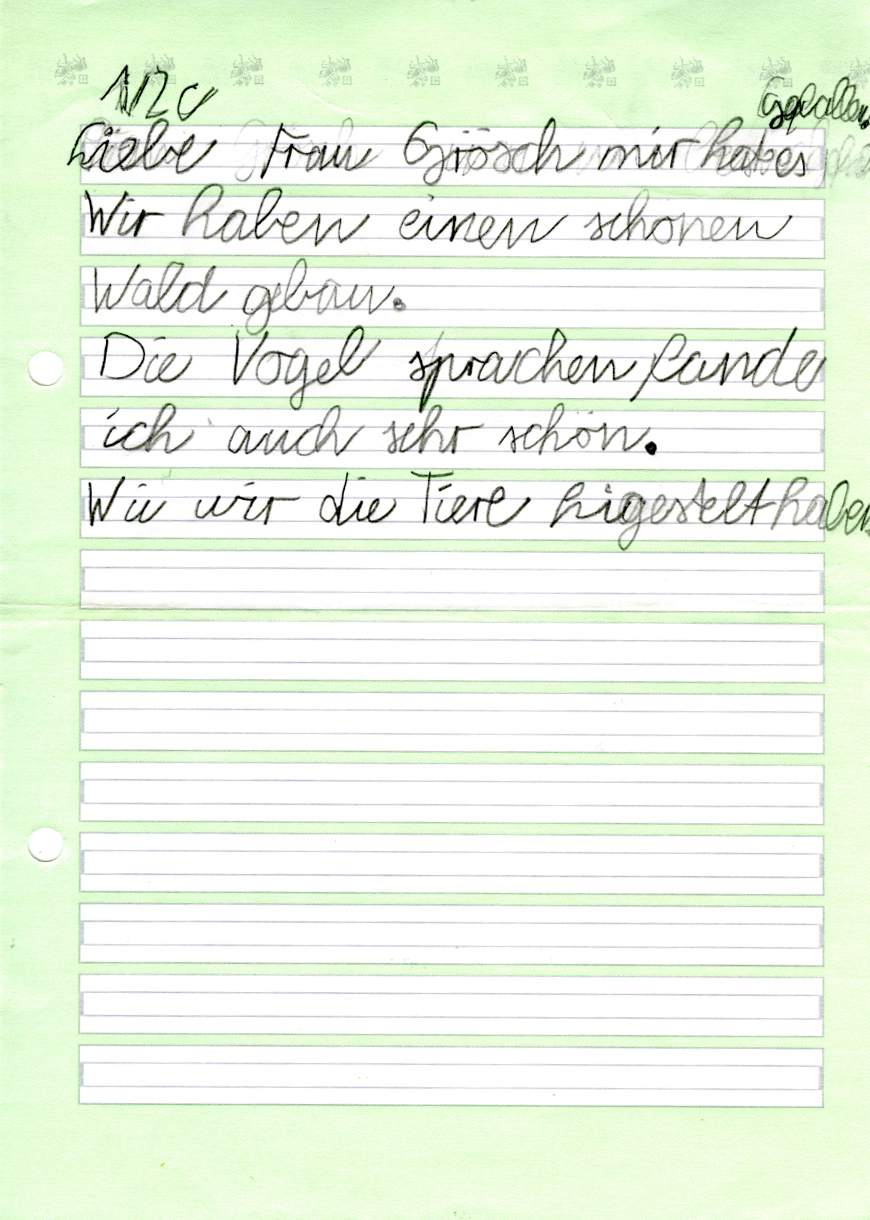 1/2 c
Gefallen.
Liebe Frau Grösch mir hat es
Wir haben einen schönen
Wald gebau.
Die Vogel sprachen fande
ich auch sehr schön.
Wie wir die Tiere higestelt haben